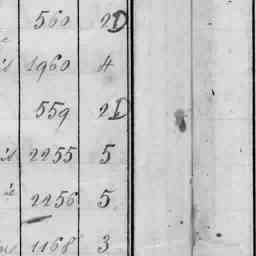 560 2D
1960 4
559 2D
2255 5
2256 5
1168 3